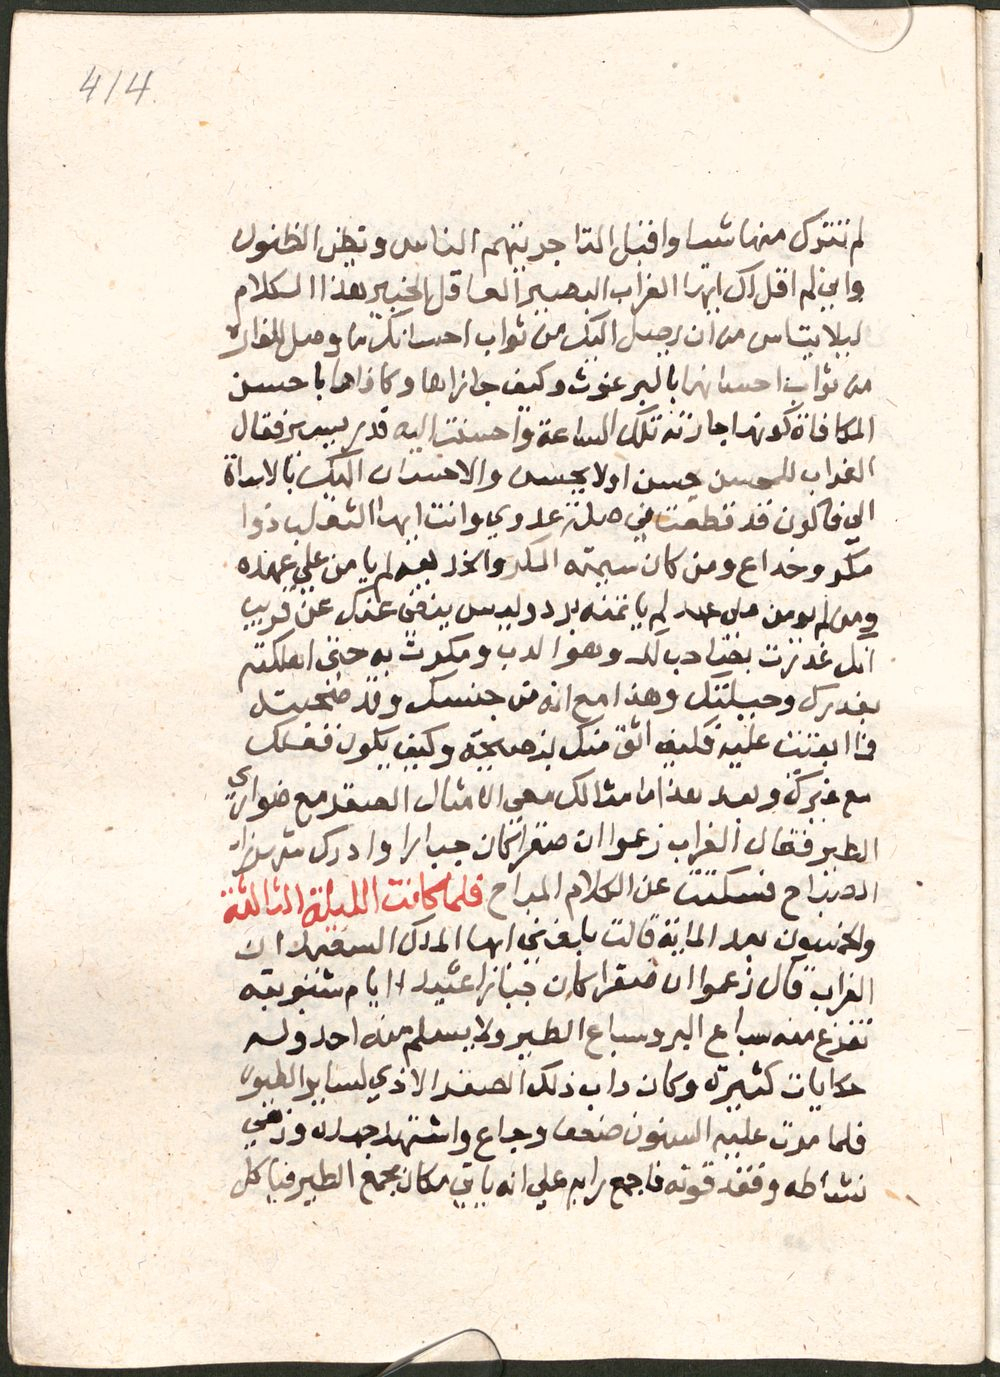 414
لم تترك منها شيا واقبل التاجر يتهم الناس ويظن الظنون
واني لم اقل لك ايها الغراب البصير العاقل الخبير هذا الكلام
ليلا يتاس من ان يصل اليك من ثواب احسانك ما وصل للفاره
من ثواب احسانها بالبرغوث وكيف جازاها وكافاها باحسن
المكافاة كونها اجارته تلك الساعة واحسنت اليه قدر يسير فقال
الغراب للمحسن يحسن اولا يحسن والاحسان اليك بالاساة
الي فاكون قد قطعت في صلة عدوي وانت ايها الثعلب ذوا
مكر وخداع ومن كان سيمته المكر والخديعه لم يامن علي عهده
ومن لم يومن علي عهد لم ياتمنه احد وليس يخفي عنك عن قريب
انك غدرت بصاحب لك وهو الدب ومكرت به حتي اهلكته
بغدرك وحيلتك وهذا مع انه من جنسك وقد صحبته
فما ابقيت عليه فكيف اثق منك بنصيحة وكيف يكون فعلك
مع غيرك وبعد هذا ما مثالك معي الا مثال الصقر مع ضواري
الطير فقال الغراب زعموا ان صقرا كان جبارا وادرك شهرزاد
الصباح فسكتت عن الكلام المباح فلما كانت الليلة الثالثة
والخمسون بعد الماية قالت بلغني ايها الملك السعيد ان
الغراب قال زعموا ان صقرا كان جبارا عنيدا ايام شبوبيته
تفزع منه سباع البر وسباع الطير ولا يسلم منه احد وله
حكايات كثيرة وكان داب ذلك الصقر الاذي لساير الطيور
فلما مرت عليه السنون ضعف وجاع واشتهد جهده وزهي
نشاطه وفقد قوته فاجمع رايه علي انه ياتي مكان مجمع الطير فياكل